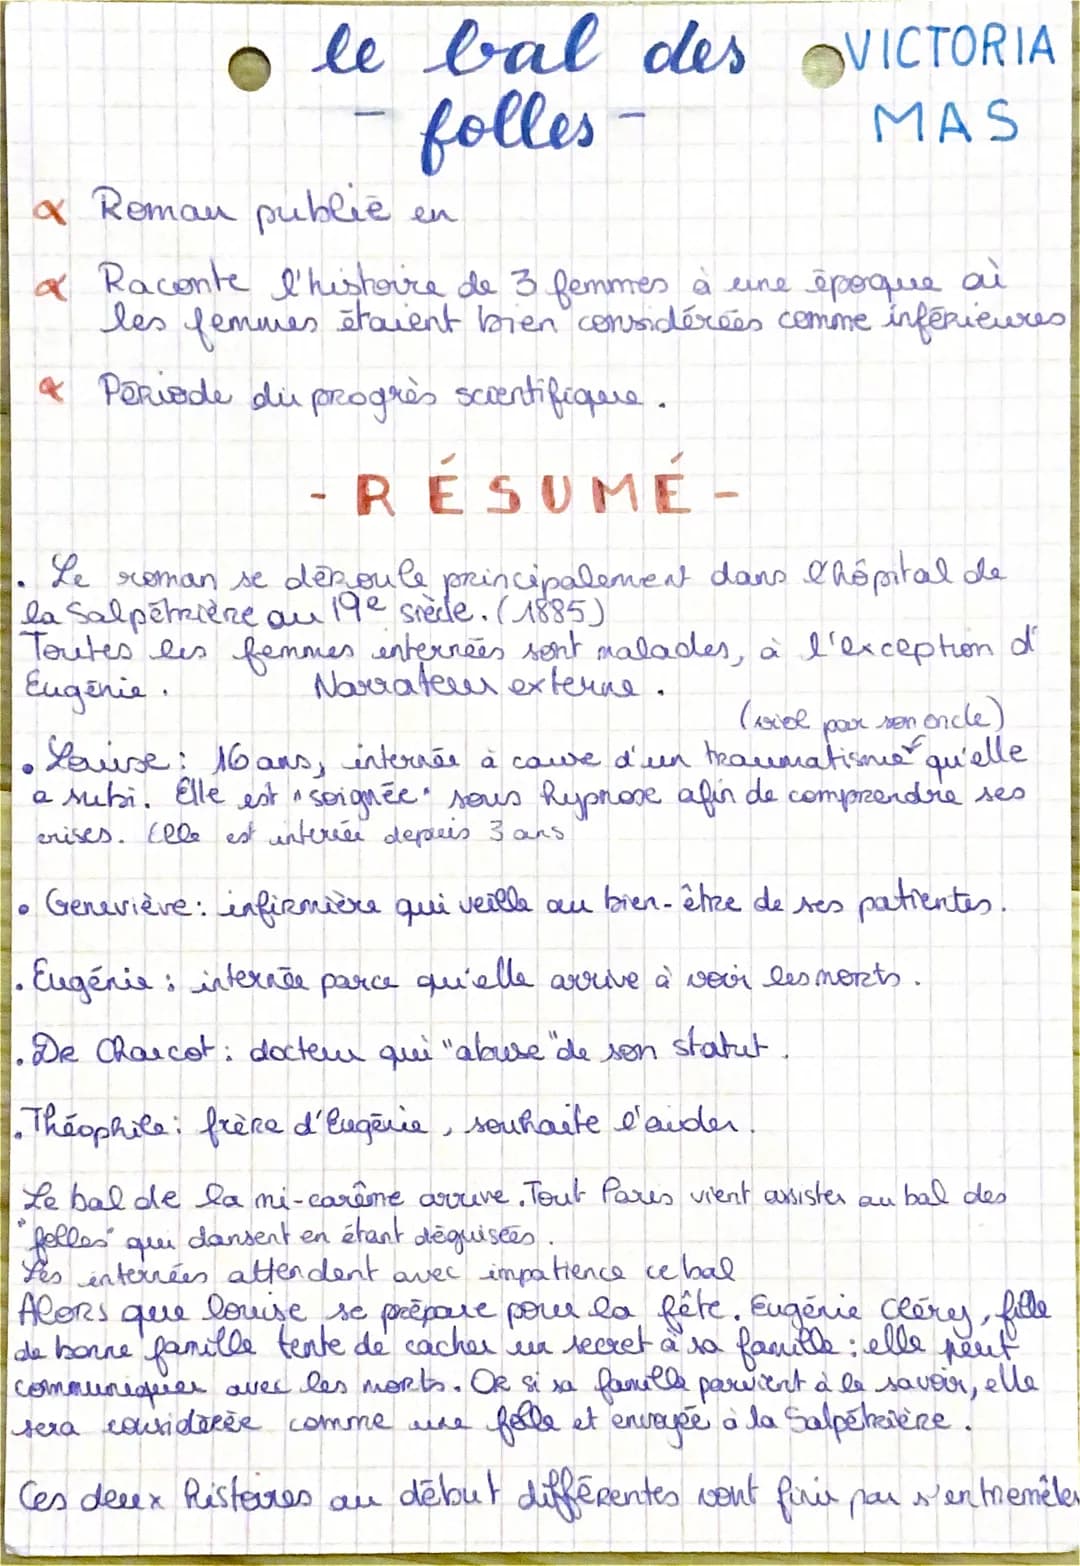 le bal des
- folles -
VICTORIA
MAS
Roman publié en
Raconte l'histoire de 3 femmes à une époque où
les femmes étaient bien considérées comme inférieures
Période du progrès scientifique.
- RÉSUMÉ -
. Le roman se déroule principalement dans l'hôpital de
la Salpêtrière au 19e siècle. (1885)
Toutes les femmes internées sont malades, à l'exception d'
Eugénie. Narrateur externe.
(viol par son oncle)
• Louise : 16 ans, internée à cause d'un traumatisme qu'elle
a subi. Elle est "soignée" sous hypnose afin de comprendre ses
crises. Elle est internée depuis 3 ans
• Geneviève : infirmière qui veille au bien-être de ses patientes.
. Eugénie : internée parce qu'elle arrive à voir les morts.
. DR Charcot : docteur qui "abuse" de son statut.
. Théophile : frère d'Eugénie, souhaite l'aider.
Le bal de la mi-carême arrive. Tout Paris vient assister au bal des
"folles" qui dansent en étant déguisées.
Les internées attendent avec impatience ce bal
Alors que Louise se prépare pour la fête. Eugénie Cléry, fille
de bonne famille tente de cacher un secret à sa famille : elle peut
communiquer avec les morts. Or si sa famille parvient à le savoir, elle
sera considérée comme une folle et envoyée à la Salpêtrière.
Ces deux histoires au début différentes vont finir par s'entremêler